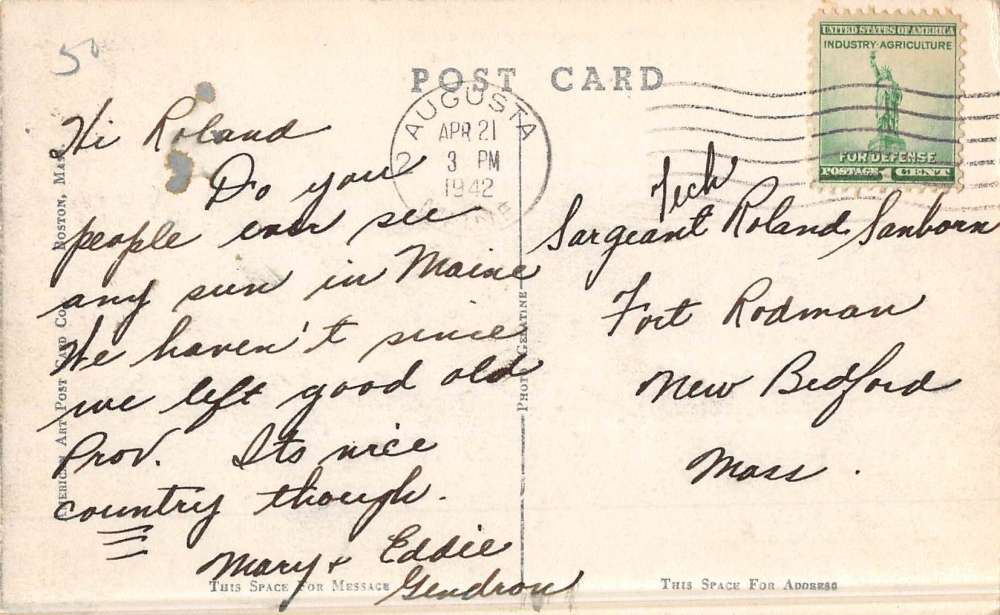 50
POST CARD
AUGUSTA
APR 21
3 PM
1942
UNITED STATES OF AMERICA
INDUSTRY·AGRICULTURE
FOR DEFENSE
POSTAGE 1 CENT
Hi Roland
Do you
people ever see
any sun in Maine
We haven't since
we left good old
Prov. Its nice
country though.
Mary & Eddie
Gendron
Tech
Sargeant Roland Sanborn
Fort Rodman
New Bedford
Mass.
AMERICAN ART POST CARD CO., BOSTON, MASS.
PHOTO-GELATINE
THIS SPACE FOR MESSAGE
THIS SPACE FOR ADDRESS